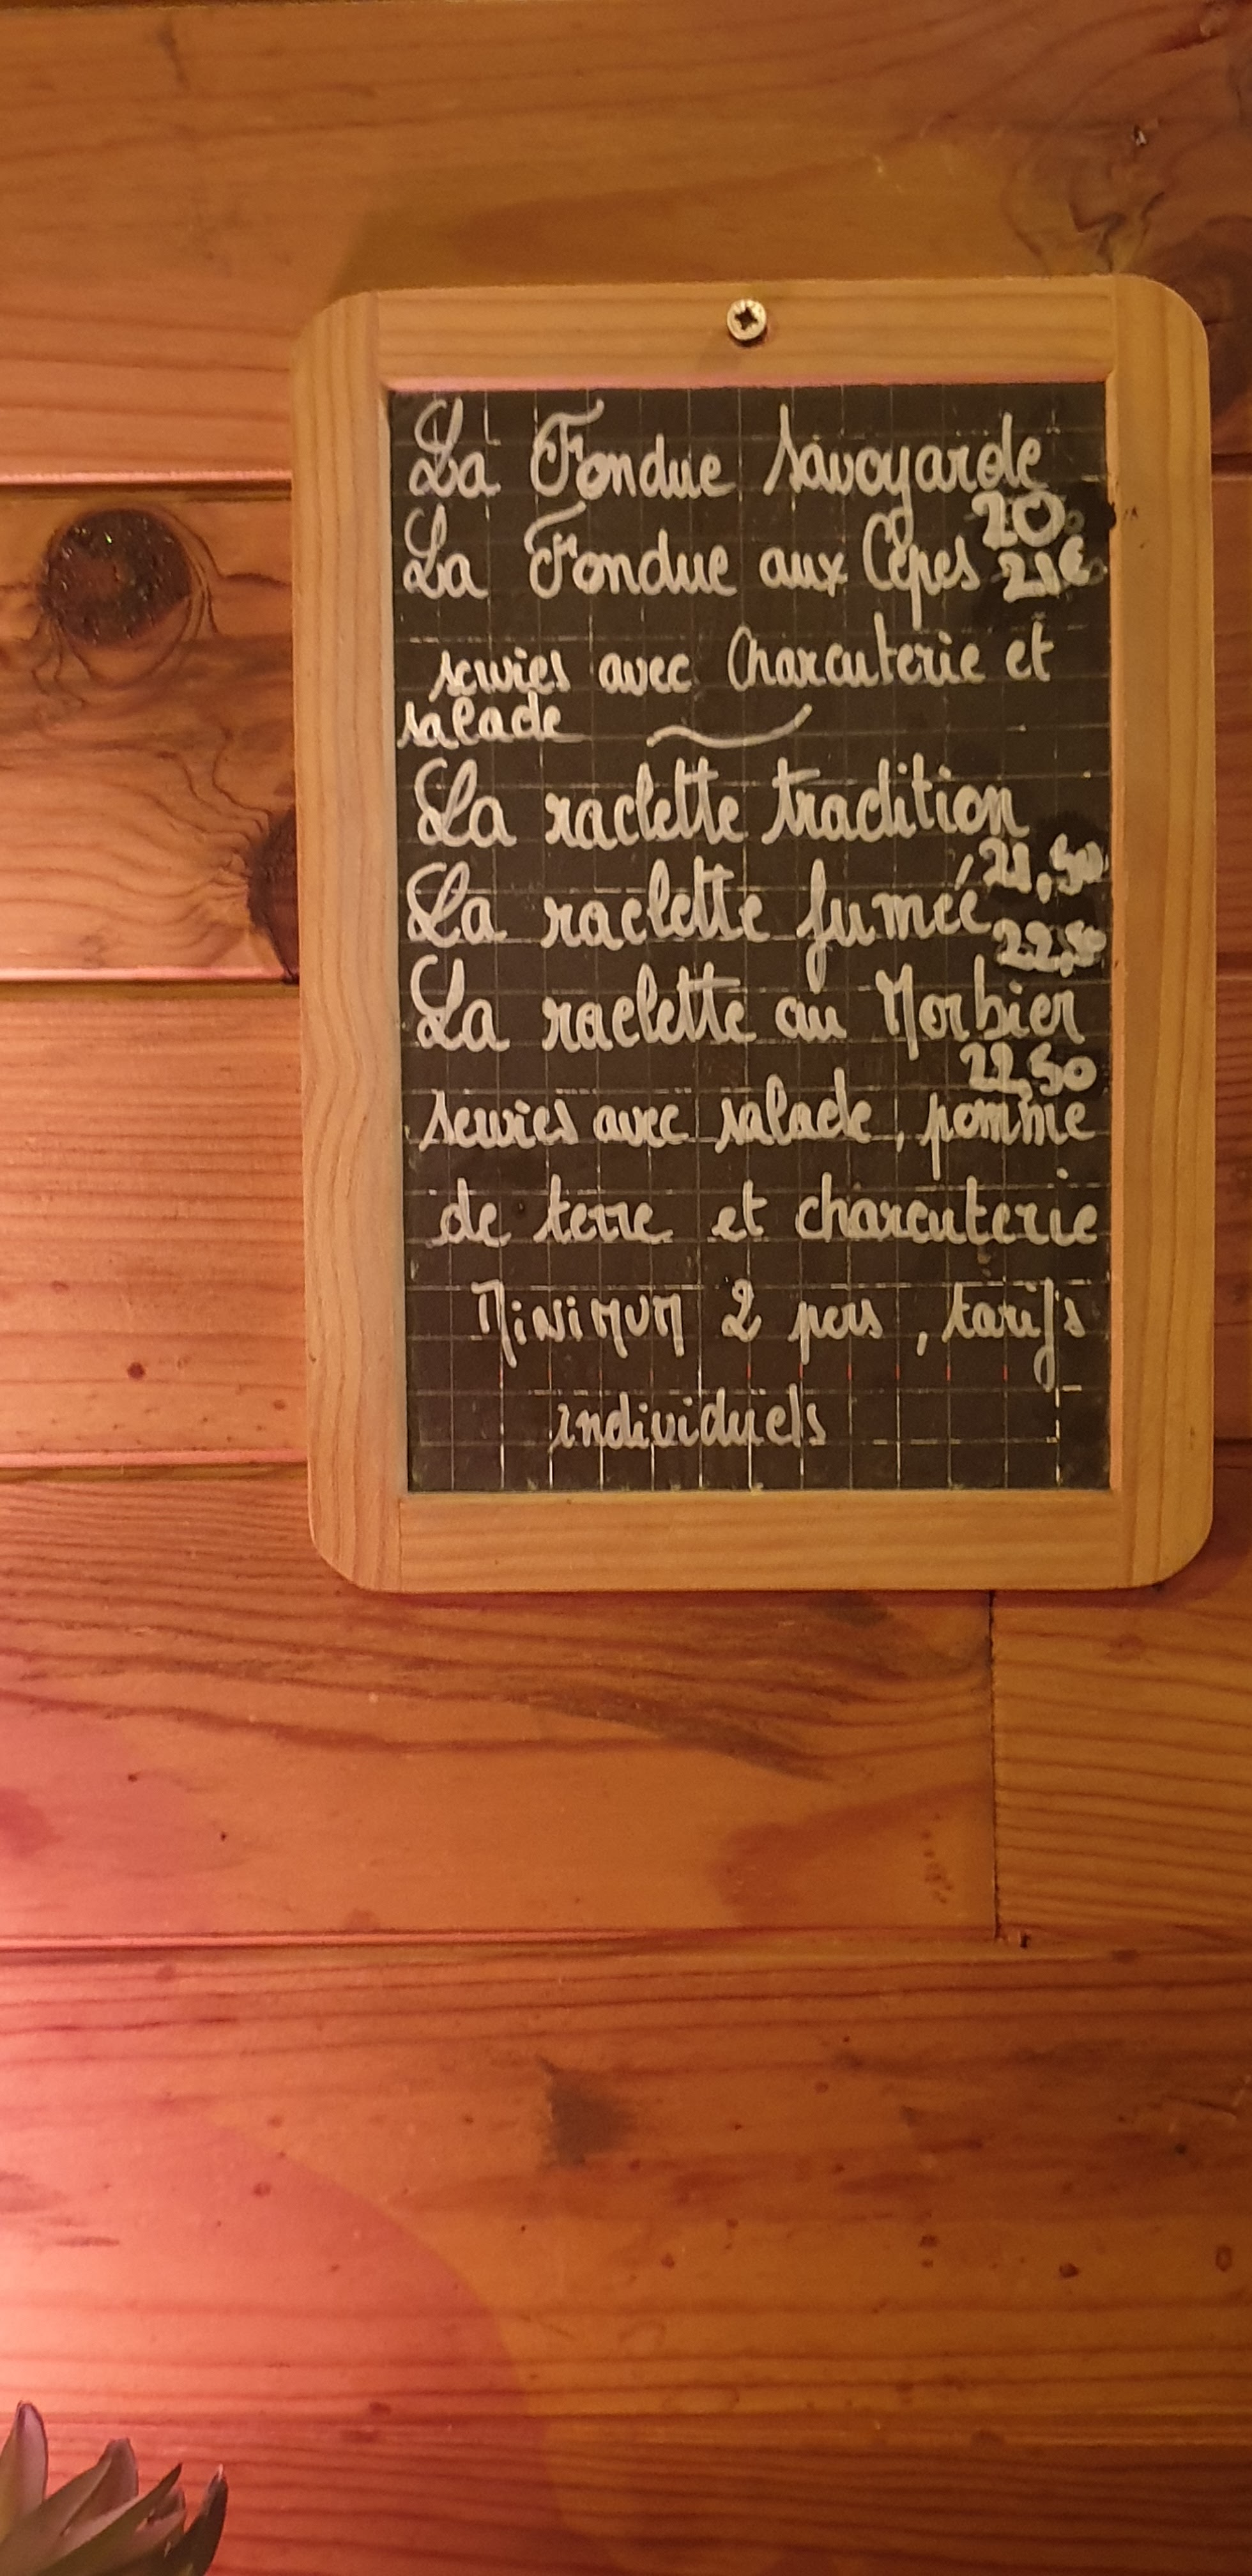 La Fondue Savoyarde
20
La Fondue aux Cèpes 21€
servies avec Charcuterie et
salade
La raclette tradition
21,50
La raclette fumée
22,50
La raclette au Morbier
22,50
servies avec salade, pomme
de terre et charcuterie
MINIMUM 2 pers, tarifs
individuels